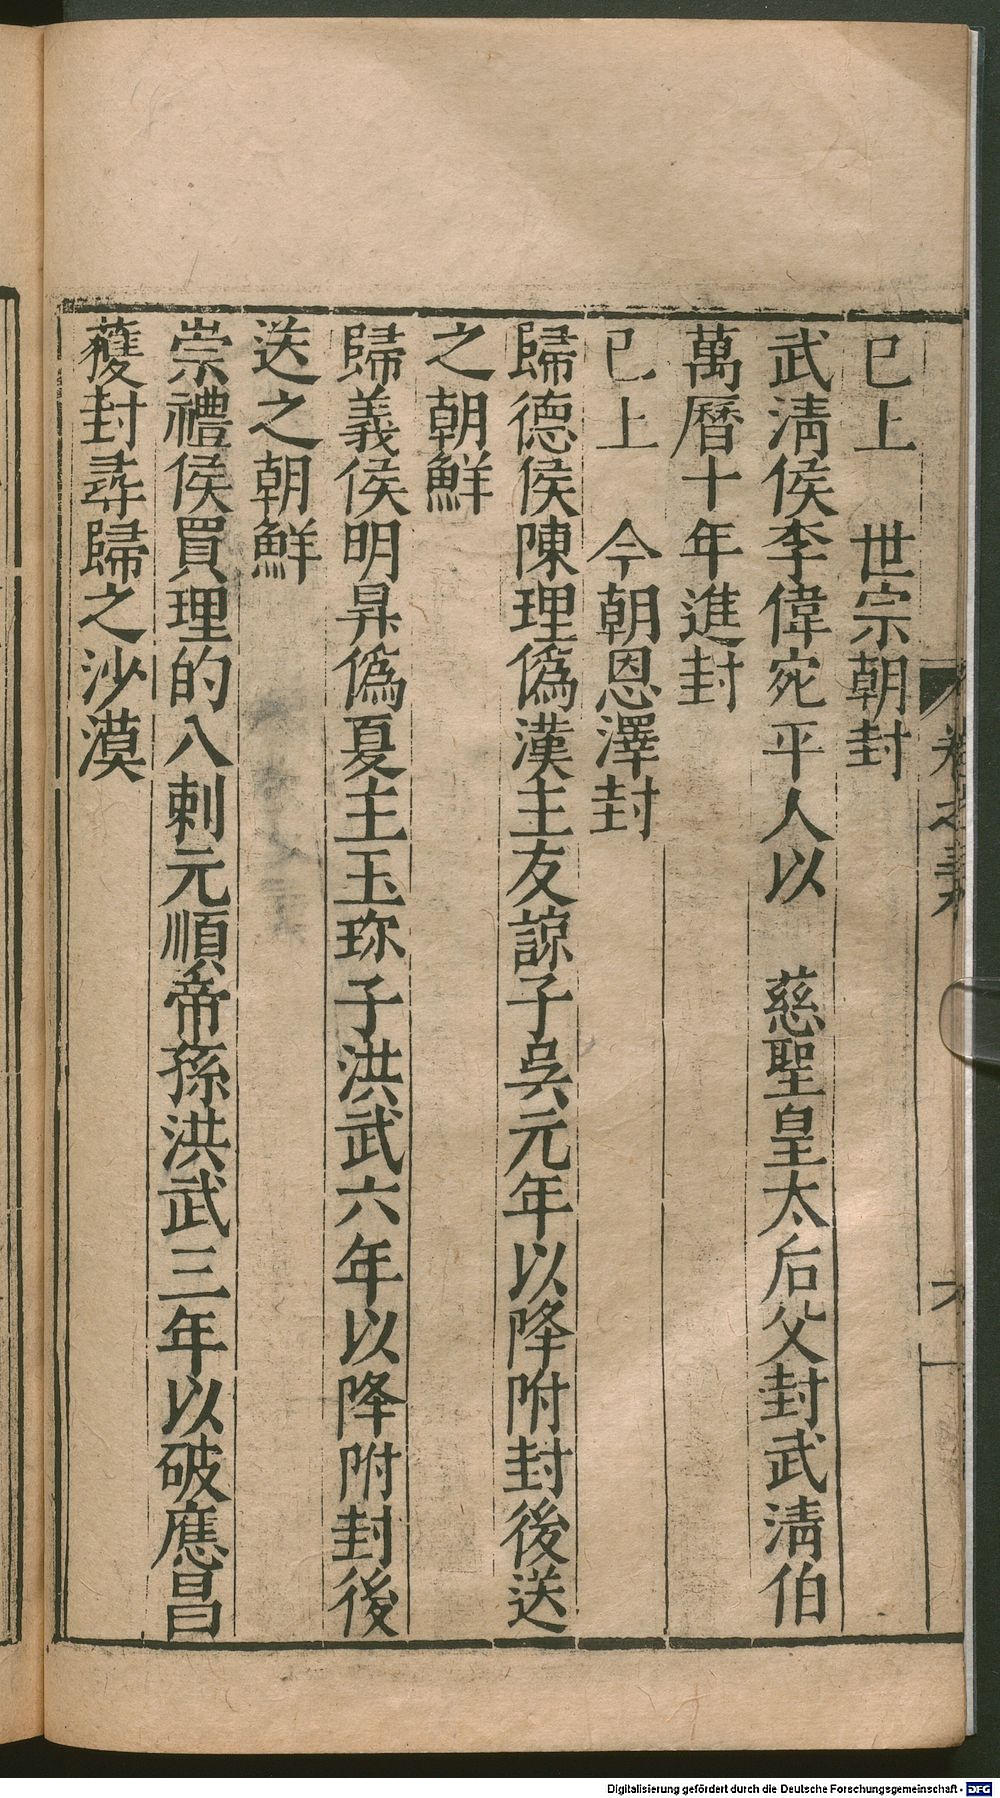 已上　世宗朝封
武清侯李偉宛平人以　慈聖皇太后父封武清伯
萬曆十年進封
已上　今朝恩澤封
歸德侯陳理僞漢主友諒子吳元年以降附封後送
之朝鮮
歸義侯明昇僞夏主玉珍子洪武六年以降附封後
送之朝鮮
崇禮侯買理的八剌元順帝孫洪武三年以破應昌
獲封尋歸之沙漠
Digitalisierung gefördert durch die Deutsche Forschungsgemeinschaft - DFG